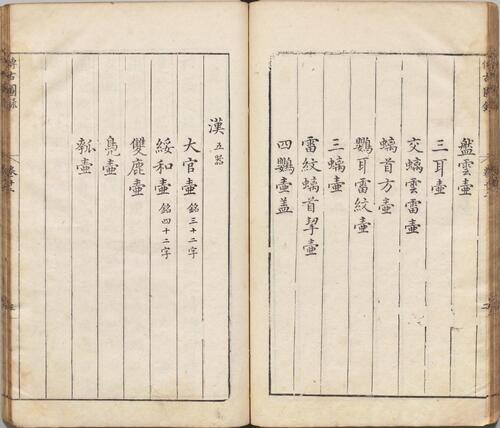 盤雲壺
三耳壺
交螭雲雷壺
螭首方壺
鸚耳雷紋壺
三螭壺
雷紋螭首挈壺
四鸚壺蓋
漢 五器
大官壺 銘三十二字
綏和壺 銘四十二字
雙鹿壺
鳧壺
瓠壺
博古圖錄